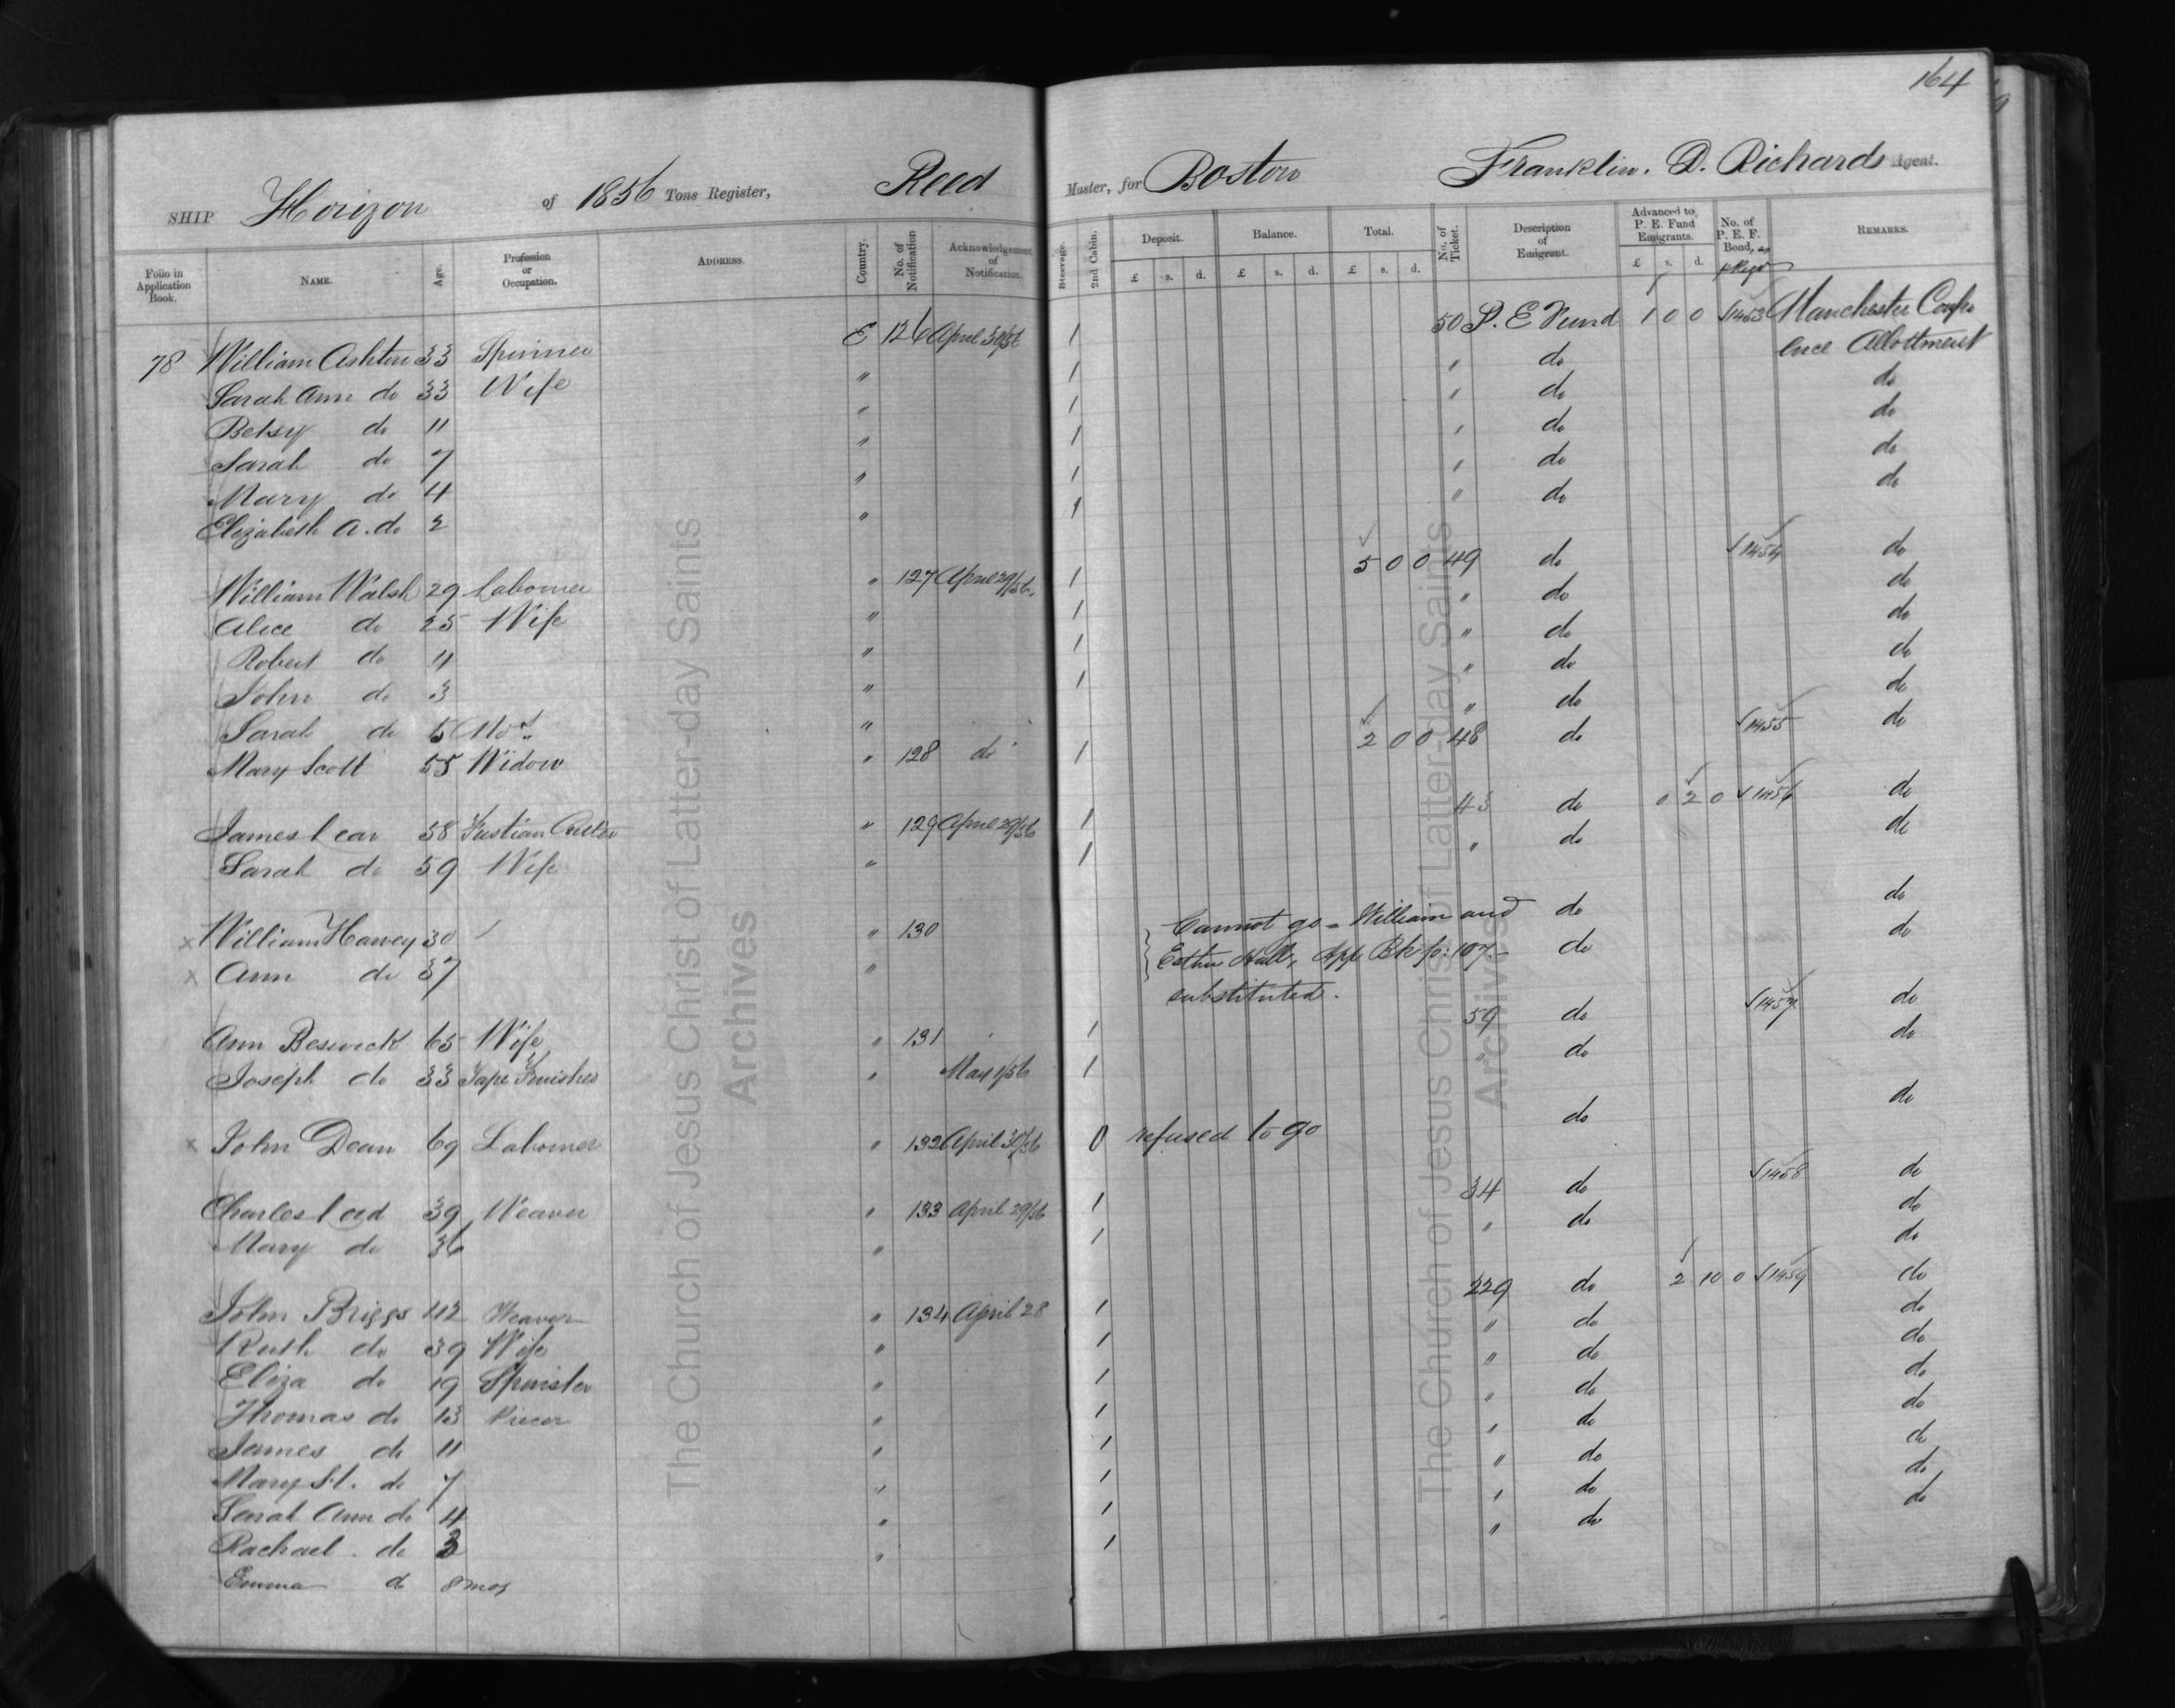 164
SHIP Horizon of 1856 Tons Register, Reed Master, for Boston Franklin. D. Richards Agent.
Folio in Application Book. NAME. Age. Profession or Occupation. ADDRESS. Country. No. of Notification Acknowledgement of Notification. Steerage. 2nd Cabin. Deposit. £ s. d. Balance. £ s. d. Total. £ s. d. No. of Ticket. Description of Emigrant. Advanced to P. E. Fund Emigrants. £ s. d. No. of P. E. F. Bond, REMARKS.
78 William Ashton 33 Spinner E 126 April 30/56 1 50 P. E Fund 1 0 0 1453 Manchester Confer
ence Allottment
Sarah Ann do 33 Wife " 1 " do
Betsy do 11 " 1 " do do
Sarah do 7 " 1 " do do
Mary do 4 " 1 " do do
Elizabeth A. do 2 " 1 " do do
William Walsh 29 Labourer " 127 April 29/56. 1 5 0 0 49 do 1454 do
Alice do 25 Wife " 1 " do do
Robert do 4 " 1 " do do
John do 3 " 1 " do do
Sarah do 5 Mos. " " do do
Mary Scott 55 Widow " 128 do 1 2 0 0 48 do 1455 do
James Lear 58 Fustian Cutter " 129 April 29/56 1 43 do 0 2 0 1456 do
Sarah do 59 Wife " 1 " do do
x William Harvey 30 " 130 Cannot go = William and do do
x Ann do 37 " Esther Hall, App Bk p: 107.- do do
substituted.
Ann Beswick 65 Wife " 131 1 59 do 1457 do
Joseph do 33 Tape Finisher " May 1/56 1 " do do
x John Dean 69 Labourer " 132 April 30/56 0 refused to go do do
Charles Lord 39 Weaver " 133 April 29/56 1 34 do 1458 do
Mary do 36 " 1 " do do
do
John Briggs 42 Weaver " 134 April 28 1 229 do 2 10 0 1459 do
Ruth do 39 Wife " 1 " do do
Eliza do 19 Spinster " 1 " do do
Thomas do 13 Piecer " 1 " do do
James do 11 " 1 " do do
Mary do 7 " 1 " do do
Sarah Ann do 4 " 1 " do do
Rachael. do 3 " 1 " do do
Emma do 8 mos
The Church of Jesus Christ of Latter-day Saints
Archives
The Church of Jesus Christ of Latter-day Saints
Archives